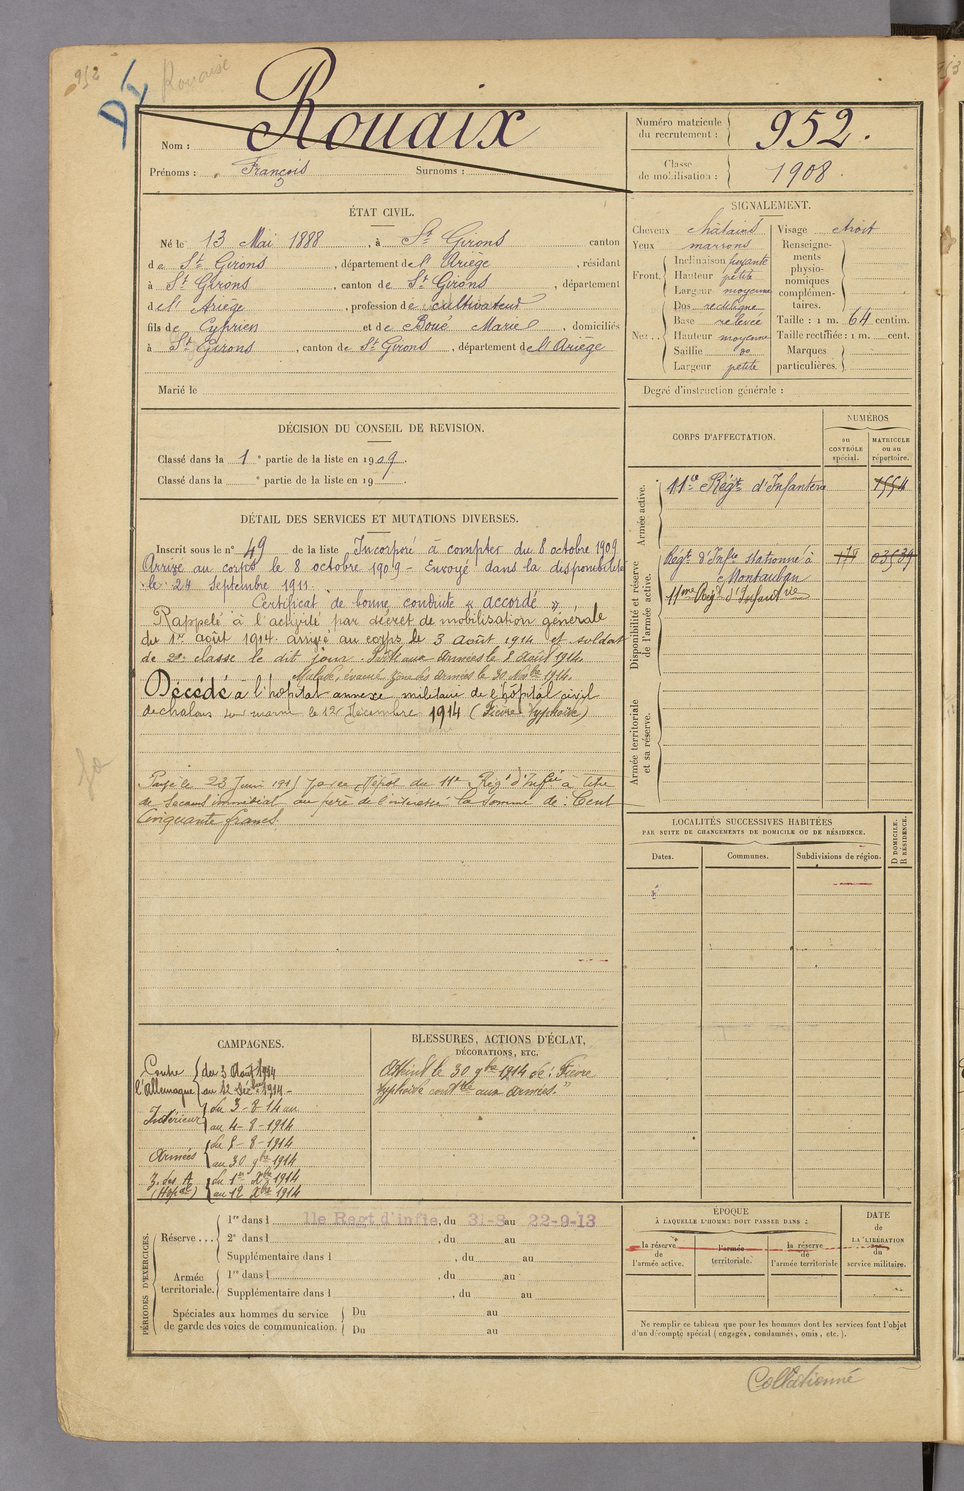 952
Rouaix
Nom : Rouaix
Prénoms : François Surnoms :
Numéro matricule du recrutement : 952.
Classe de mobilisation : 1908.
ÉTAT CIVIL.
Né le 13 Mai 1888, à St Girons canton
de St Girons, département de l'Ariège, résidant
à St Girons, canton de St Girons, département
de l'Ariège, profession de cultivateur
fils de Cyprien et de Boué Marie, domiciliés
à St Girons, canton de St Girons, département de l'Ariège
Marié le
SIGNALEMENT.
Cheveux châtains
Yeux marrons
Front, Inclinaison fuyante
Hauteur petite
Largeur moyenne
Nez.. Dos rectiligne
Base relevée
Hauteur moyenne
Saillie do
Largeur petite
Visage étroit
Renseignements physionomiques complémentaires.
Taille : 1 m. 64 centim.
Taille rectifiée : 1 m. cent.
Marques particulières.
Degré d'instruction générale :
DÉCISION DU CONSEIL DE REVISION.
Classé dans la 1e partie de la liste en 1909.
Classé dans la e partie de la liste en 19
DÉTAIL DES SERVICES ET MUTATIONS DIVERSES.
Inscrit sous le n° 49 de la liste Incorporé à compter du 8 octobre 1909
Arrivé au corps le 8 octobre 1909 - Envoyé dans la disponibilité
le 24 Septembre 1911.
Certificat de bonne conduite « accordé »
Rappelé à l'activité par décret de mobilisation générale
du 1er août 1914. arrivé au corps le 3 Août 1914 et soldat
de 2e classe le dit jour. Parti aux armées le 8 Août 1914.
Malade, évacué zone des armées le 30 Novbre 1914.
Décédé à l'hopital annexe militaire de l'hôpital civil
de chalons sur marne le 12 Décembre 1914 (Fièvre typhoïde)
Payé le 23 Juin 191 par le Dépôt du 11e Régt d'Inflie à titre
de Secours immédiat au père de l'intéressé la somme de : Cent
Cinquante francs.
CORPS D'AFFECTATION.
NUMÉROS
au CONTRÔLE spécial.
MATRICULE ou au répertoire.
Armée active.
11e Régt d'Infanterie
Disponibilité et réserve de l'armée active.
Régt d'Infie stationné à
Montauban
11me Régt d'Infantrie
Armée territoriale et sa réserve.
LOCALITÉS SUCCESSIVES HABITÉES
PAR SUITE DE CHANGEMENTS DE DOMICILE OU DE RÉSIDENCE.
Dates. Communes. Subdivisions de région.
D DOMICILE. R RÉSIDENCE.
CAMPAGNES.
Contre l'Allemagne du 3 Août 1914
au 12 Déc 1914 -
Intérieur du 3-8-14 au
au 4-8-1914
Armées du 5-8-1914
au 30 9bre 1914
Z. des A. du 1er Xbre 1914
(Hopal) au 12 Xbre 1914
BLESSURES, ACTIONS D'ÉCLAT,
DÉCORATIONS, ETC.
Atteint le 30 9bre 1914 de : Fièvre
typhoïde contée aux armées."
PÉRIODES D'EXERCICES.
Réserve...
1re dans l 11e Regt d'infie, du 31-8 au 22-9-13
2e dans l, du au
Supplémentaire dans l, du au
Armée territoriale.
1re dans l, du au
Supplémentaire dans l, du au
Spéciales aux hommes du service de garde des voies de communication.
Du au
Du au
ÉPOQUE
À LAQUELLE L'HOMME DOIT PASSER DANS :
la réserve de l'armée active.
l'armée territoriale.
la réserve de l'armée territoriale
DATE de LA LIBÉRATION du service militaire.
Ne remplir ce tableau que pour les hommes dont les services font l'objet
d'un décompte spécial (engagés, condamnés, omis, etc.).
Collationné